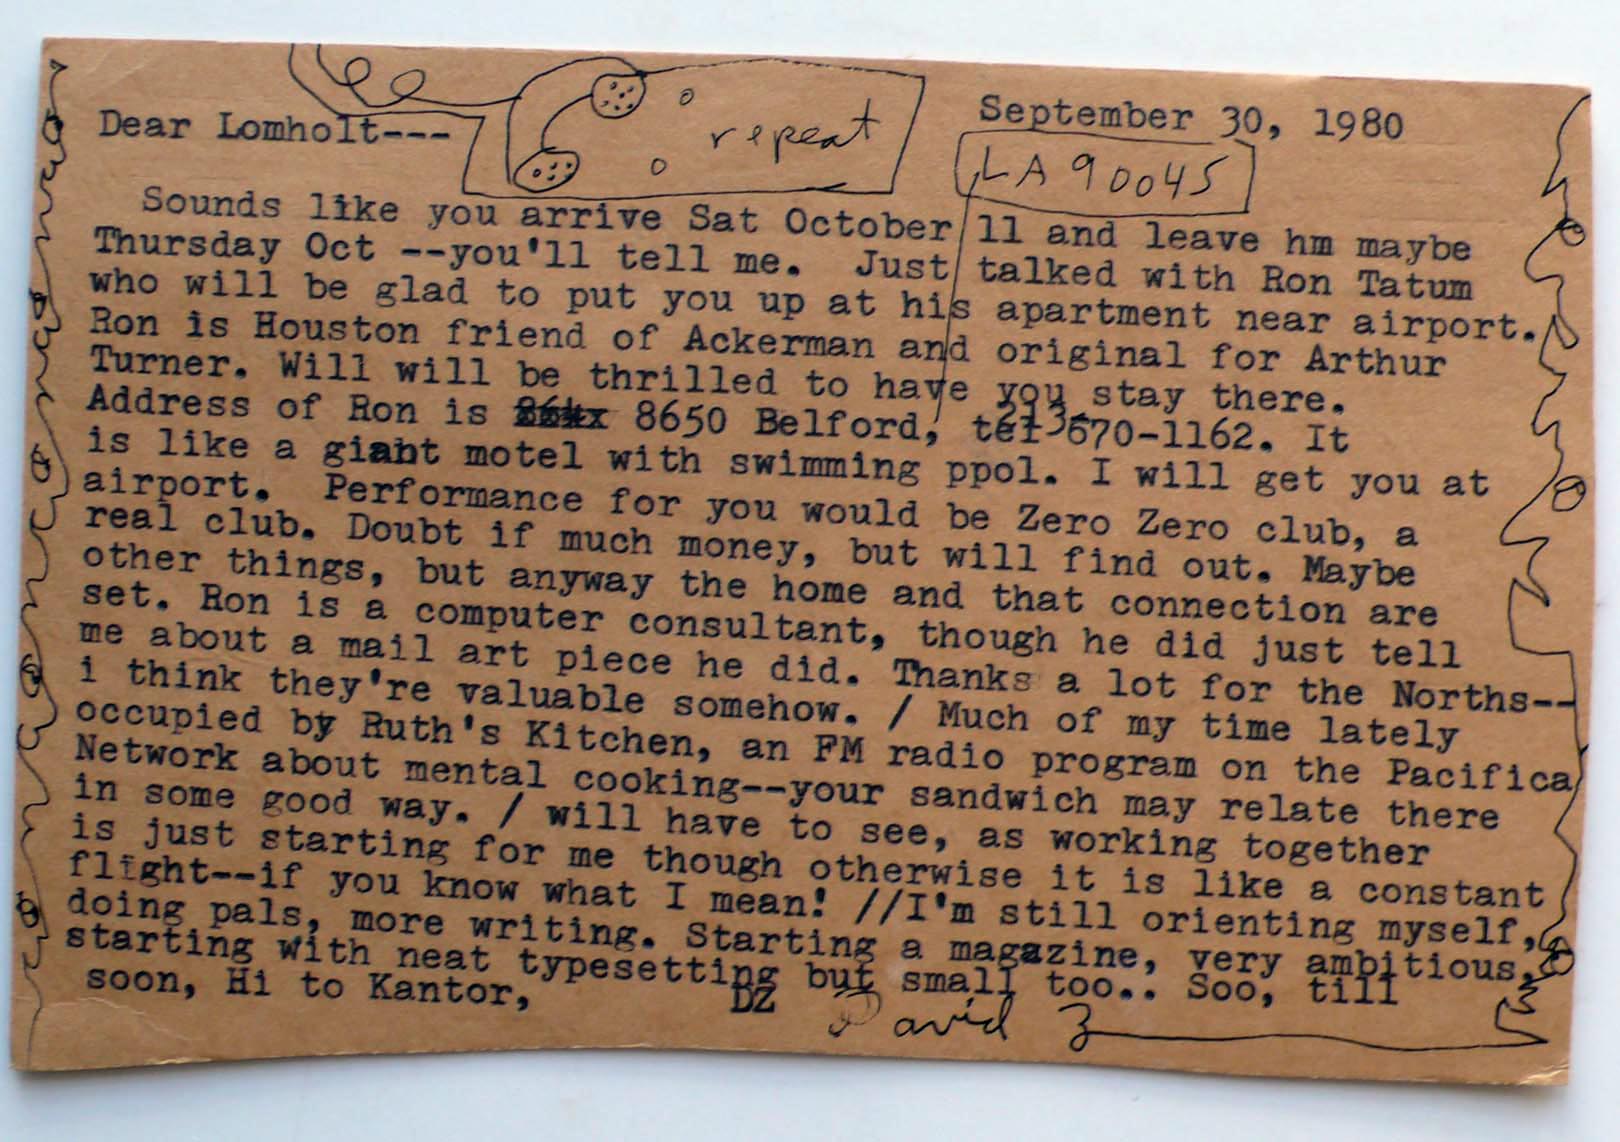 September 30, 1980
Dear Lomholt---
repeat
LA 90045
Sounds like you arrive Sat October 11 and leave hm maybe
Thursday Oct --you'll tell me.  Just talked with Ron Tatum
who will be glad to put you up at his apartment near airport.
Ron is Houston friend of Ackerman and original for Arthur
Turner. Will will be thrilled to have you stay there.
Address of Ron is 8650 Belford, tel 213-670-1162. It
is like a giant motel with swimming ppol. I will get you at
airport.  Performance for you would be Zero Zero club, a
real club. Doubt if much money, but will find out. Maybe
other things, but anyway the home and that connection are
set. Ron is a computer consultant, though he did just tell
me about a mail art piece he did. Thanks a lot for the Norths--
i think they're valuable somehow. / Much of my time lately
occupied by Ruth's Kitchen, an FM radio program on the Pacifica
Network about mental cooking--your sandwich may relate there
in some good way. / will have to see, as working together
is just starting for me though otherwise it is like a constant
flight--if you know what I mean! //I'm still orienting myself,
doing pals, more writing. Starting a magazine, very ambitious,
starting with neat typesetting but small too.. Soo, till
soon, Hi to Kantor,
DZ
David Z